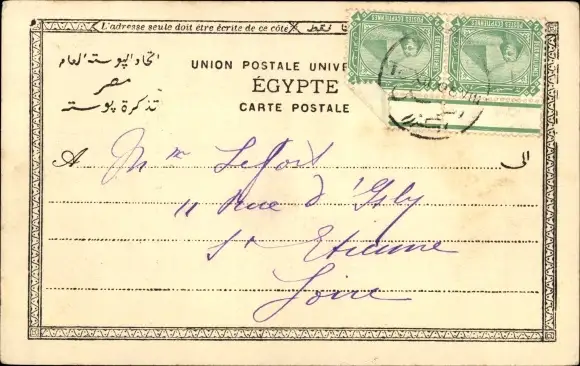 L'adresse seule doit être écrite de ce côté
فقط
اتحاد البوسته العام
مصر
تذكرة بوسته
UNION POSTALE UNIVE
ÉGYPTE
CARTE POSTALE
POSTES EGYPTIENNES
POSTES EGYPTIENNES
A
الى
Mme Lefort
11 Rue d'Isly
St Etienne
Loire